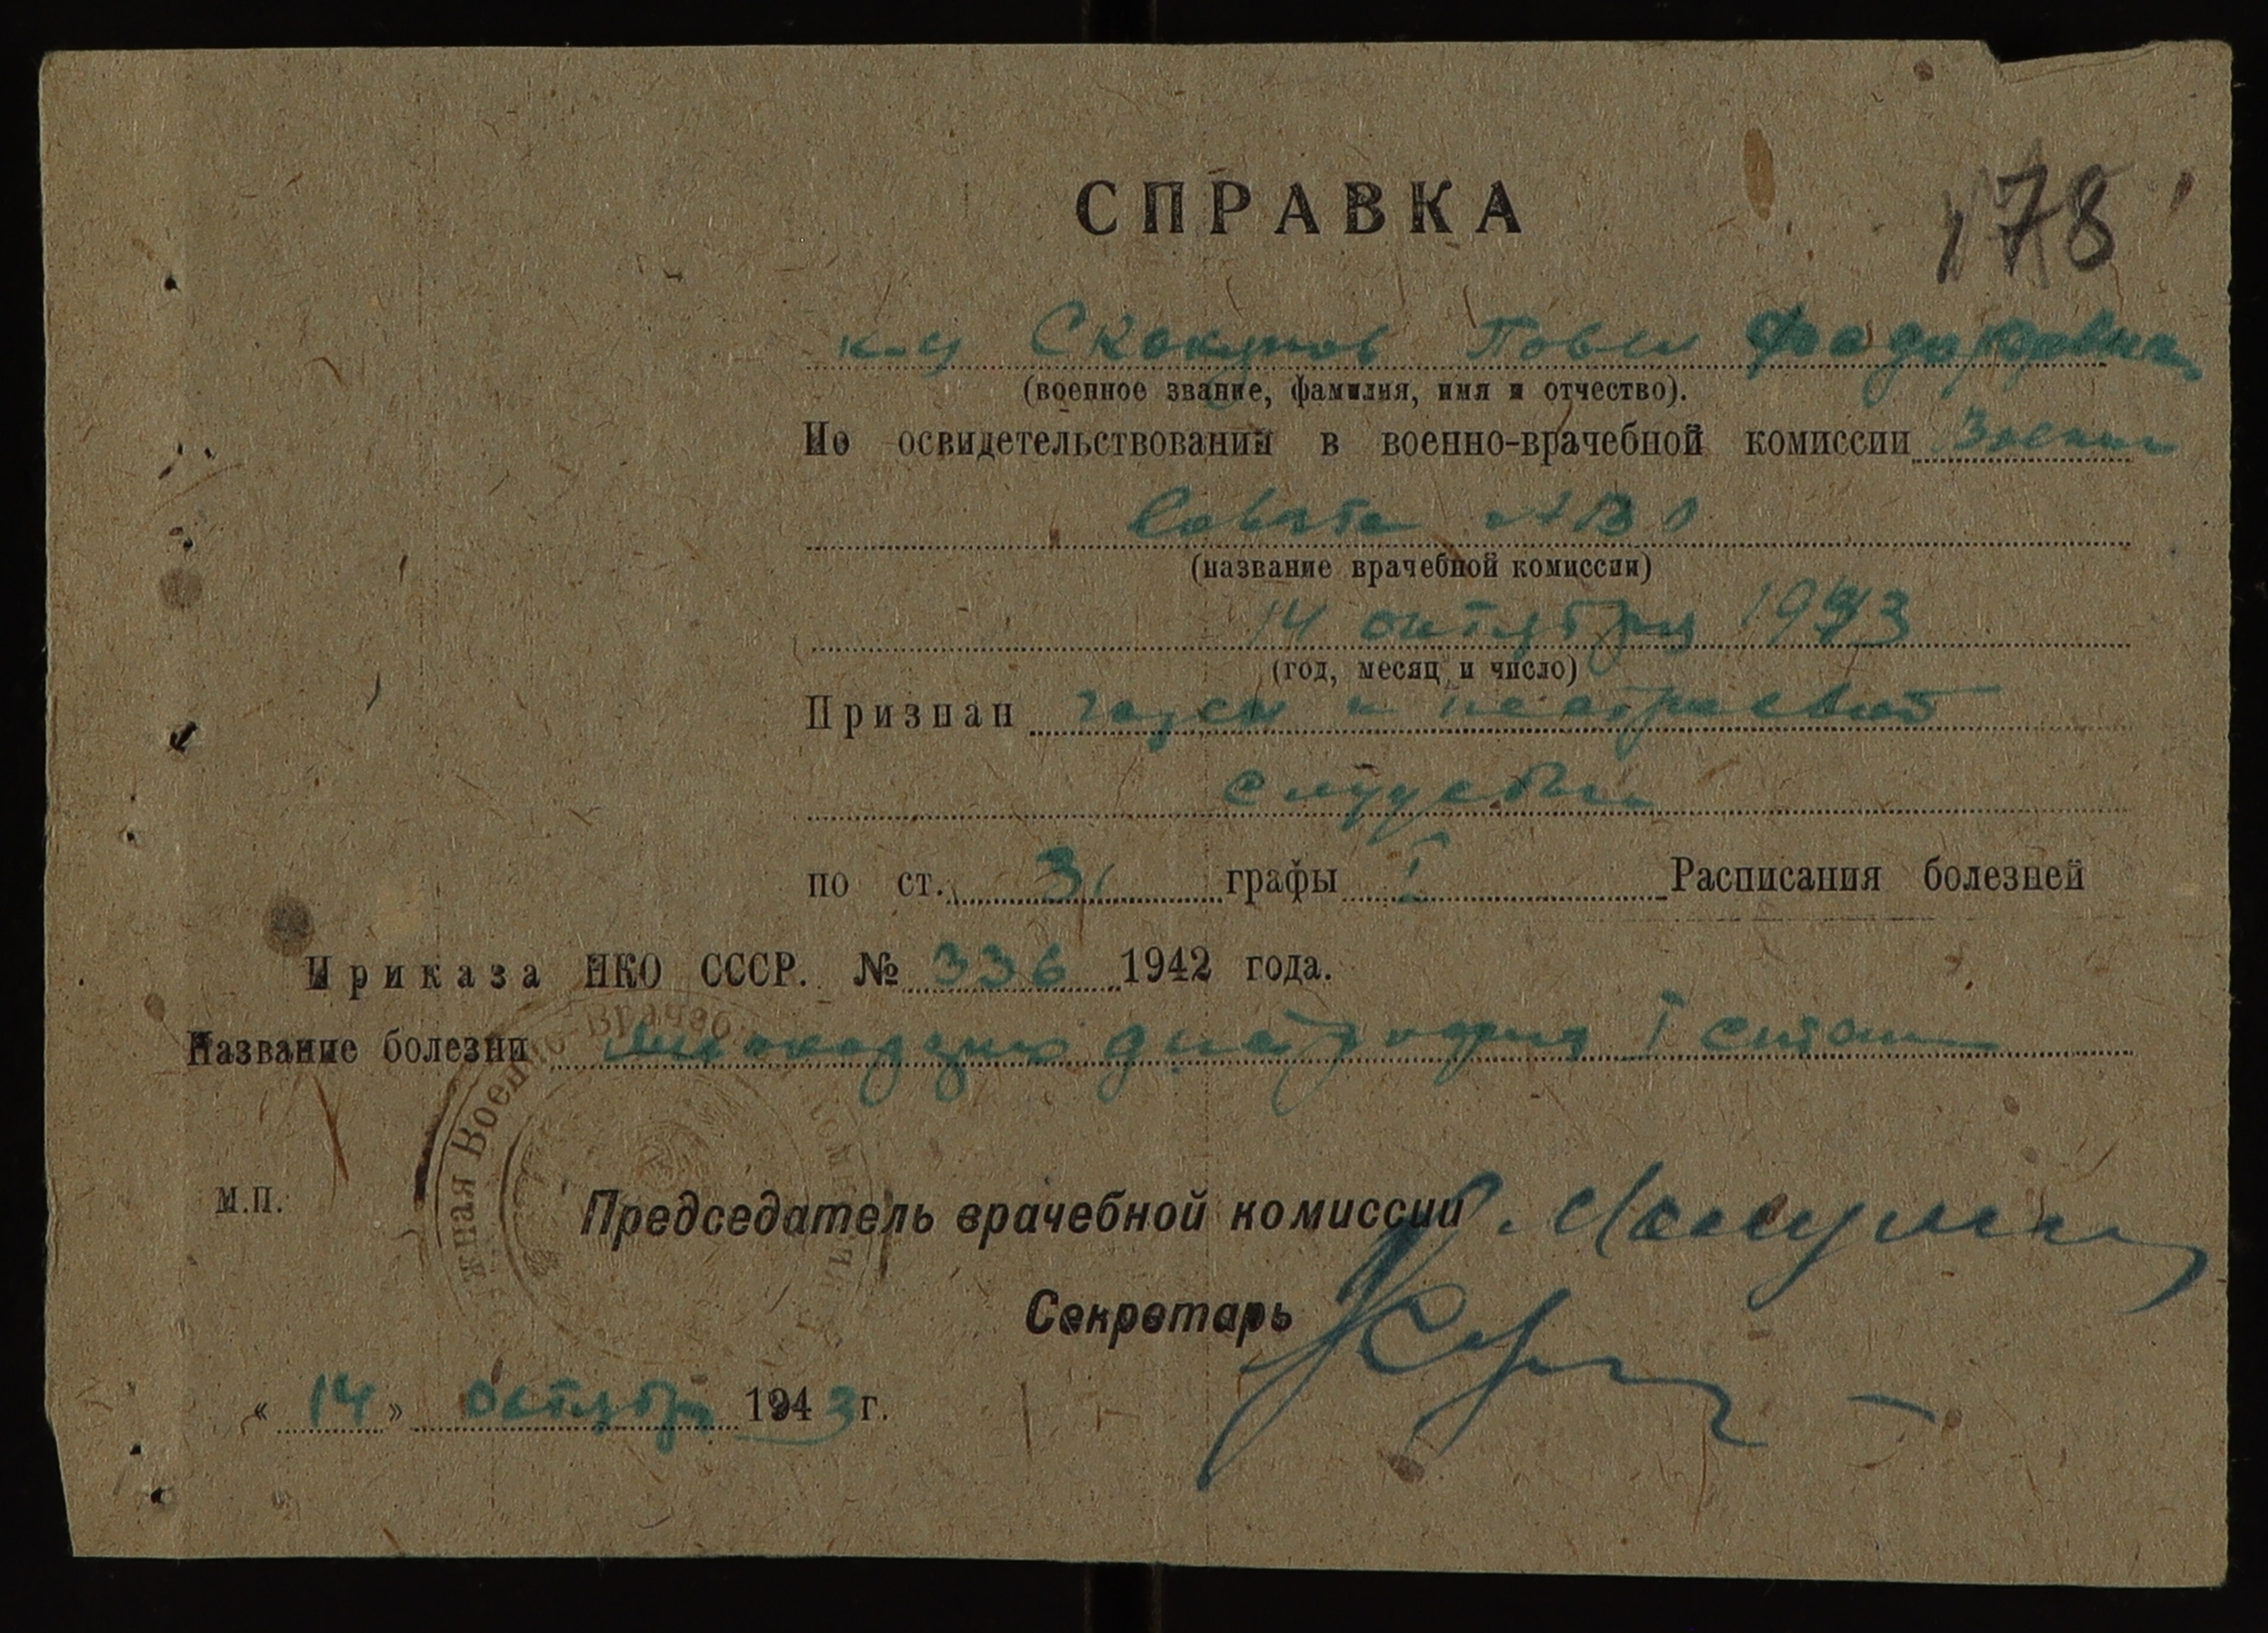 СПРАВКА
178
к-у Скакунов Повел
(военное звание, фамилия, имя и отчество).
По освидетельствовании в военно-врачебной комиссии Военн
Совета АВО
(название врачебной комиссии)
14 октября 1943
(год, месяц и число)
Признан годен к нестроевой
службы
по ст. 31 графы I Расписания болезней
Приказа НКО СССР. № 336 1942 года.
Название болезни миокардио дистрофия I
М.П.
Председатель врачебной комиссии
Секретарь
« 14 » октября 1943 г.